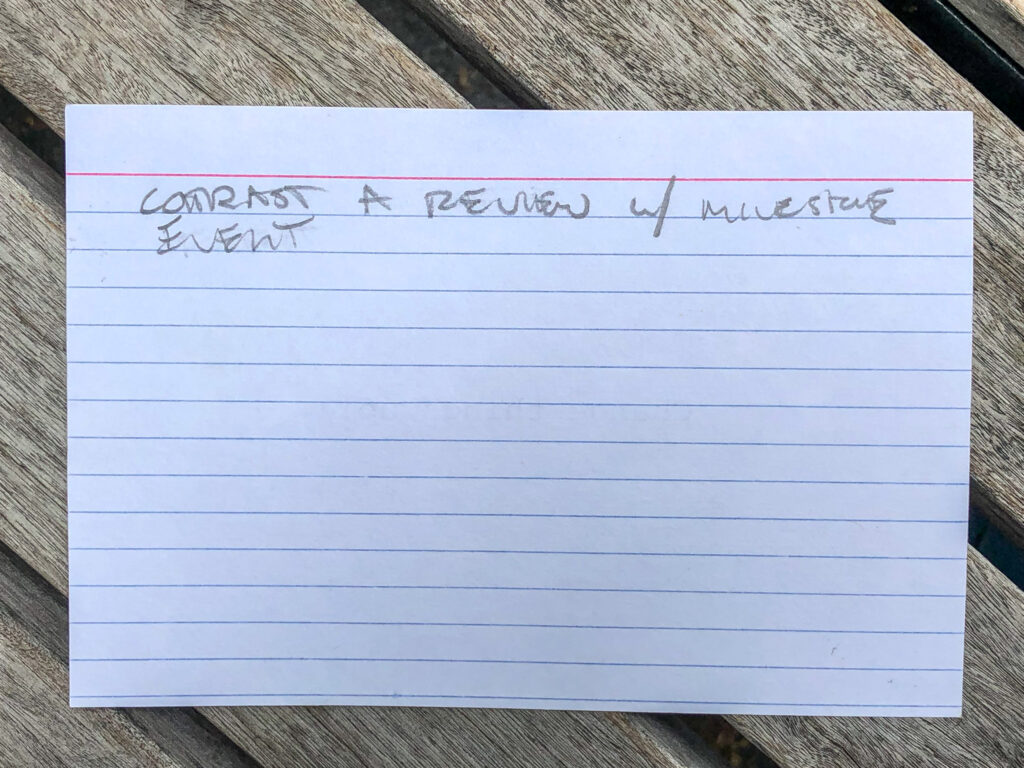 CONTRAST A REVIEW w/ MILESTONE
EVENT